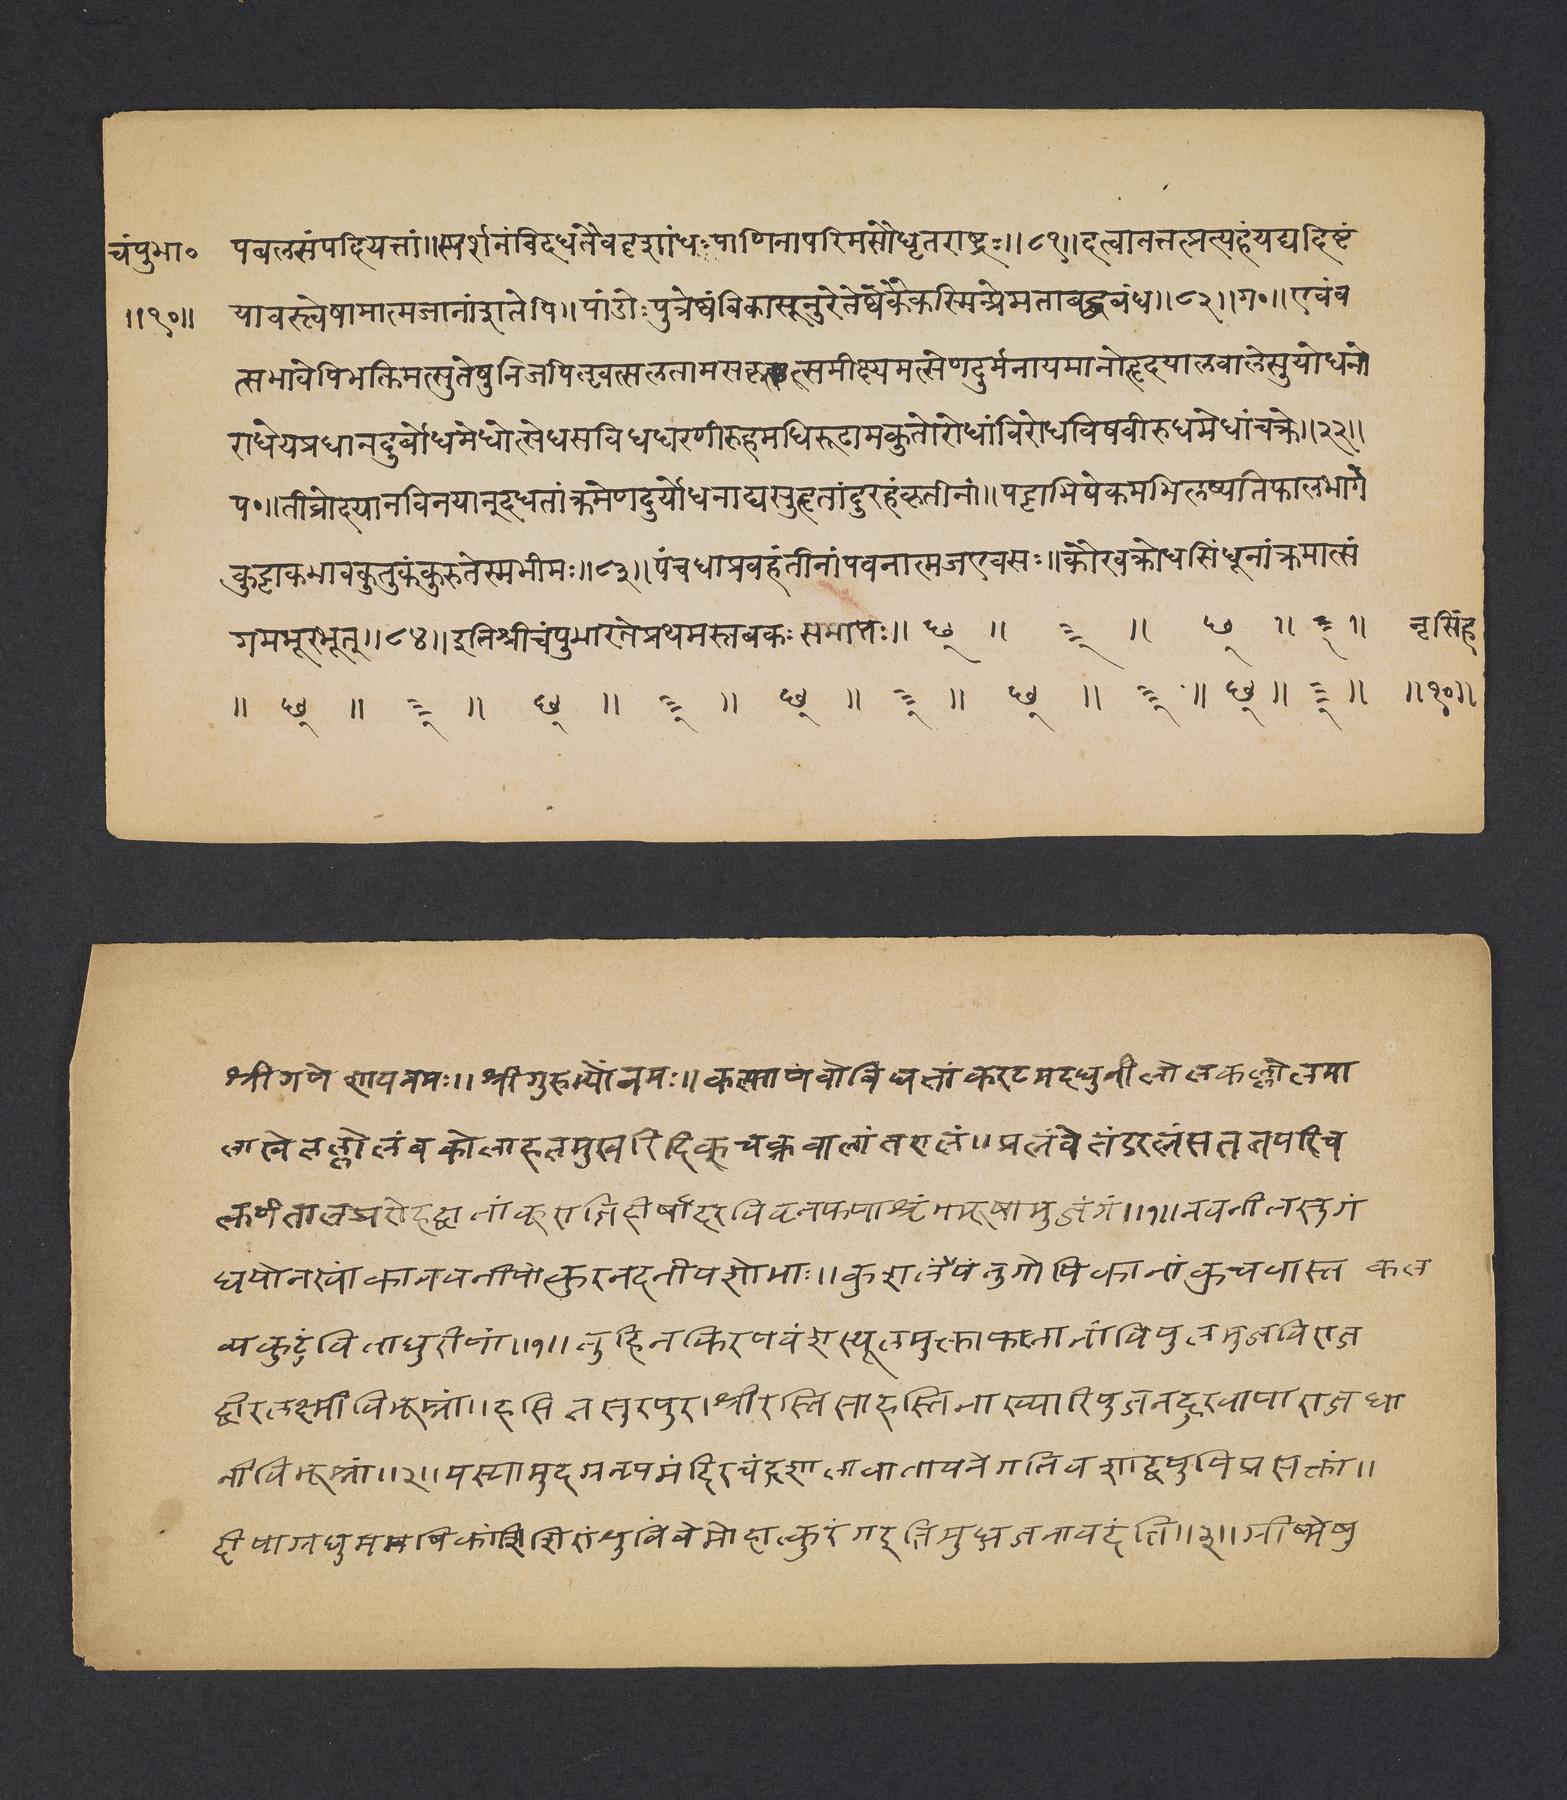 चंपुभा०
॥१०॥
पबलसंपदियत्तां॥स्पर्शनंविदधतैवदृशांधःपाणिनापरिममर्सौधृतराष्ट्रः॥८१॥दत्वातत्तत्प्रत्यहंयद्यदिष्टं
यावस्त्वेषामात्मजानांशतेपि॥पांडोःपुत्रेष्वंबिकासूनुरेतेष्वेकैकस्मिन्प्रेमताबद्धबंध॥८२॥ग०॥एवंव
त्सभावेपिभक्तिमत्सुतेषुनिजपितृवत्सलतामसकृत्समीक्ष्यमत्सेणदुर्मनायमानोहृदयालवालेसुयोधनो
राधेयप्रधानदुर्बोधमेधोत्सेधसविधधरणीरुहमधिरूढामकुतोरोधांविरोधविषवीरुधमेधांचक्रे॥२२॥
प०॥तीव्रोदयानविनयान्दधतांक्रमेणदुर्योधनाद्यसुहृतांदुरहंकृतीनां॥पट्टाभिषेकमभिलष्यतिफालभागे
कुट्टाकभावकुतुकंकुरुतेस्मभीमः॥८३॥पंचधाप्रवहंतीनांपवनात्मजएवसः॥कौरवक्रोधसिंधूनांक्रमात्सं
गमभूरभूत्॥८४॥इतिश्रीचंपुभारतेप्रथमस्तबकःसमाप्तः॥ छ् ॥ ॥ छ् ॥ ॥ नृसिंह
॥ छ् ॥ ॥ छ् ॥ ॥ छ् ॥ ॥ छ् ॥ ॥ छ् ॥ ॥ ॥१०॥
श्रीगणेशायनमः॥श्रीगुरुभ्योनमः॥कल्याणंवोविधत्तांकरटमदधुनीलोलकल्लोलमा
लाखेलल्लोलंबकोलाहलमुखरिदिक्चक्रवालांतरालं॥प्रत्नंवेतंडरत्नंसततपरिच
लत्कर्णतालप्ररोहद्वातांकूराजिहीर्षादरविवृतफणाशृंगभूषाभुजंगं॥१॥नवनीलस्तुगं
घयोनखांकानवनीपांत्कुरनदनीयशोभाः॥कुशलंपंतुगोपिकानांकुचवास्त कल
व्यकुटुंविताधुरीणां॥१॥तुहिनकिरणवंशेस्थूलमुक्ताफलानांविपुलभुजविराज
द्वीरलक्ष्मीविभूम्नां॥हसितसुरपुरश्रीरस्तिसाहस्तिनाख्यारिपुजनदुरवापाराजधा
नीविभूम्नां॥२॥यस्यामुदग्रनृपमंदिरचंद्रशालावातायनेगतिवशाद्वपुषिप्रसक्तां॥
हीषाग्नधुममषिकांशिशिरांशुबिंबेमोहात्कुरंगइतिमुग्धजनावदंति॥३॥ग्रीष्मेषु